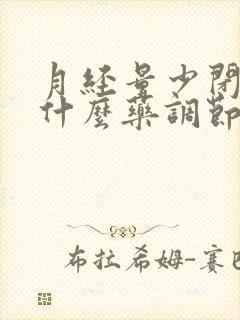 月经量少閉
什麼藥調節
布拉希姆-賽巴